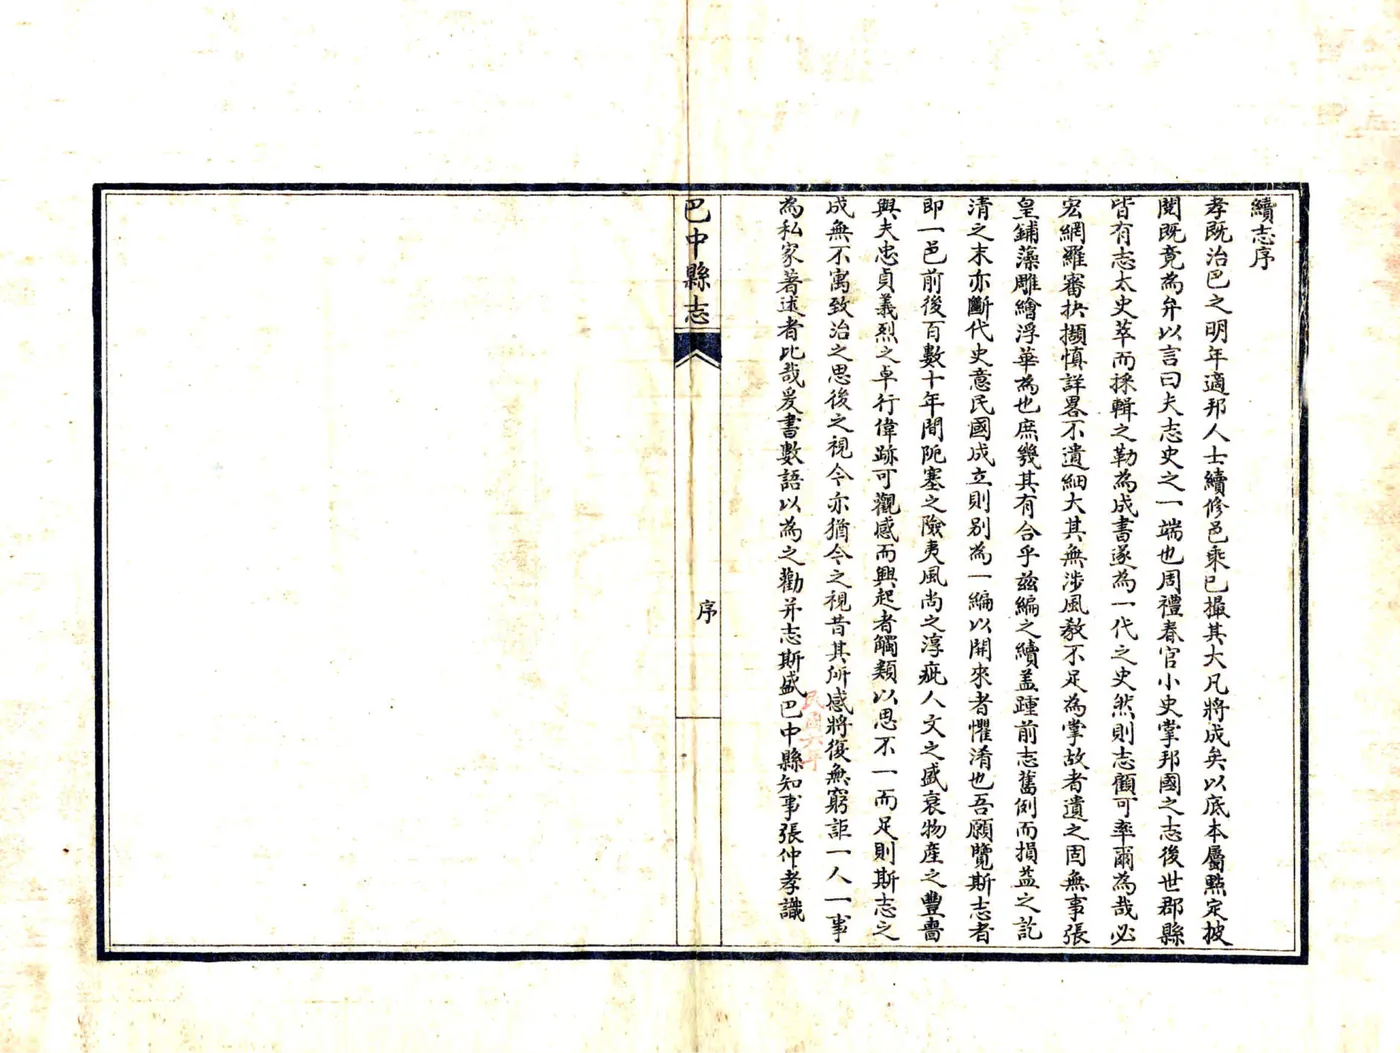 續志序
孝既治巴之明年適邦人士續修邑乘已撮其大凡將成矣以底本屬點定披
閱既竟為弁以言曰夫志史之一端也周禮春官小史掌邦國之志後世郡縣
皆有志太史萃而採輯之勒為成書遂為一代之史然則志顧可率爾為哉必
宏網羅審抉擷慎詳畧不遺細大其無涉風教不足為掌故者遺之固無事張
皇鋪藻雕繪浮華為也庶幾其有合乎茲編之續盖踵前志舊例而損益之訖
清之末亦斷代史意民國成立則别為一編以開來者懼淆也吾願覽斯志者
即一邑前後百數十年間阨塞之險夷風尚之淳疵人文之盛衰物產之豐嗇
興夫忠貞義烈之卓行偉跡可觀感而興起者觸類以思不一而足則斯志之
成無不寓致治之思後之視今亦猶今之視昔其所感將復無窮詎一人一事
為私家著述者比哉爰書數語以為之勸并志斯盛巴中縣知事張仲孝識
巴中縣志
序
民國六年